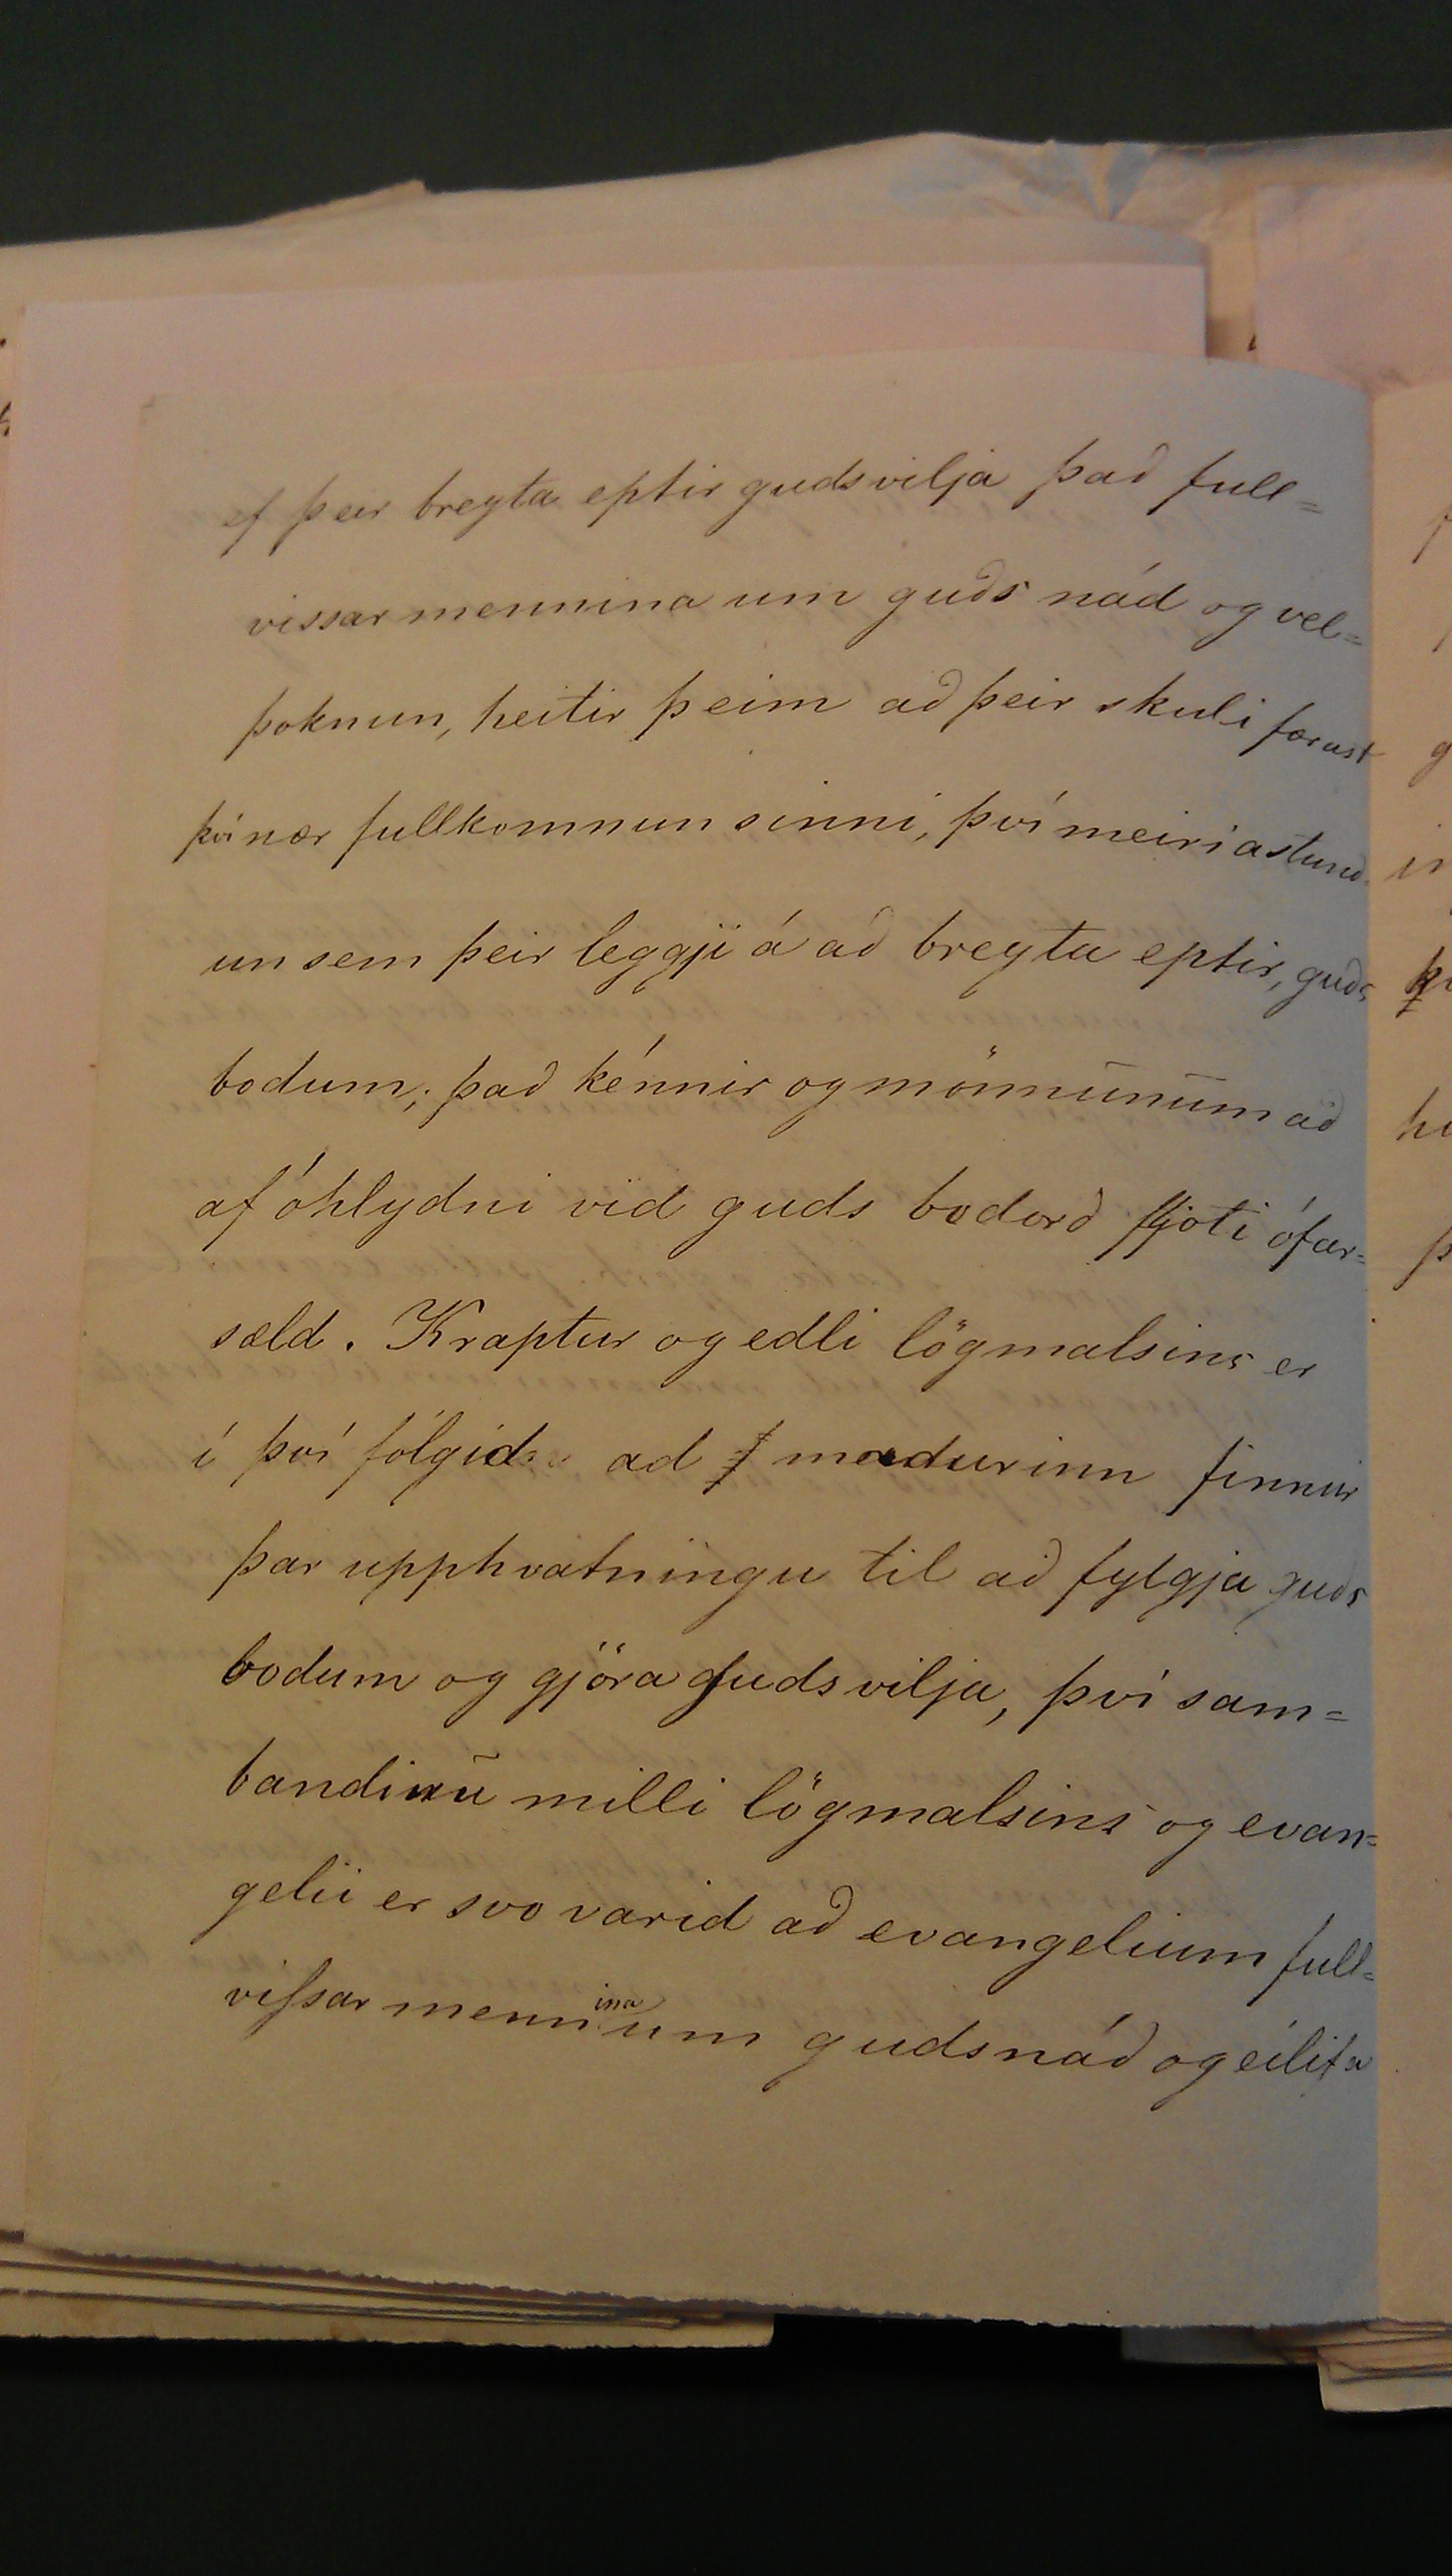 ef þeir breyta eptir guds vilja það full=
vissar mennina um guðs nád og vel=
þoknun, heitir þeim að þeir skuli færast
því nær fullkomnun sinni, því meiri astund-
un sem þeir leggji á að breyta eptir, guðs
bodum; það kénnir og mönnūnūm að
af óhlydni vid guds bodorð fljóti ófar=
sæld. Kraptur og edli lögmalsins er
í því fólgid ad madurinn finnur
þar upphvatningu til að fylgja guðs
bodum og gjöra guds vilja, því sam=
bandinū milli lögmalsins og evan=
gelii er svo varid að evangelium full=
viſsar mennina um guds náð og eilífa